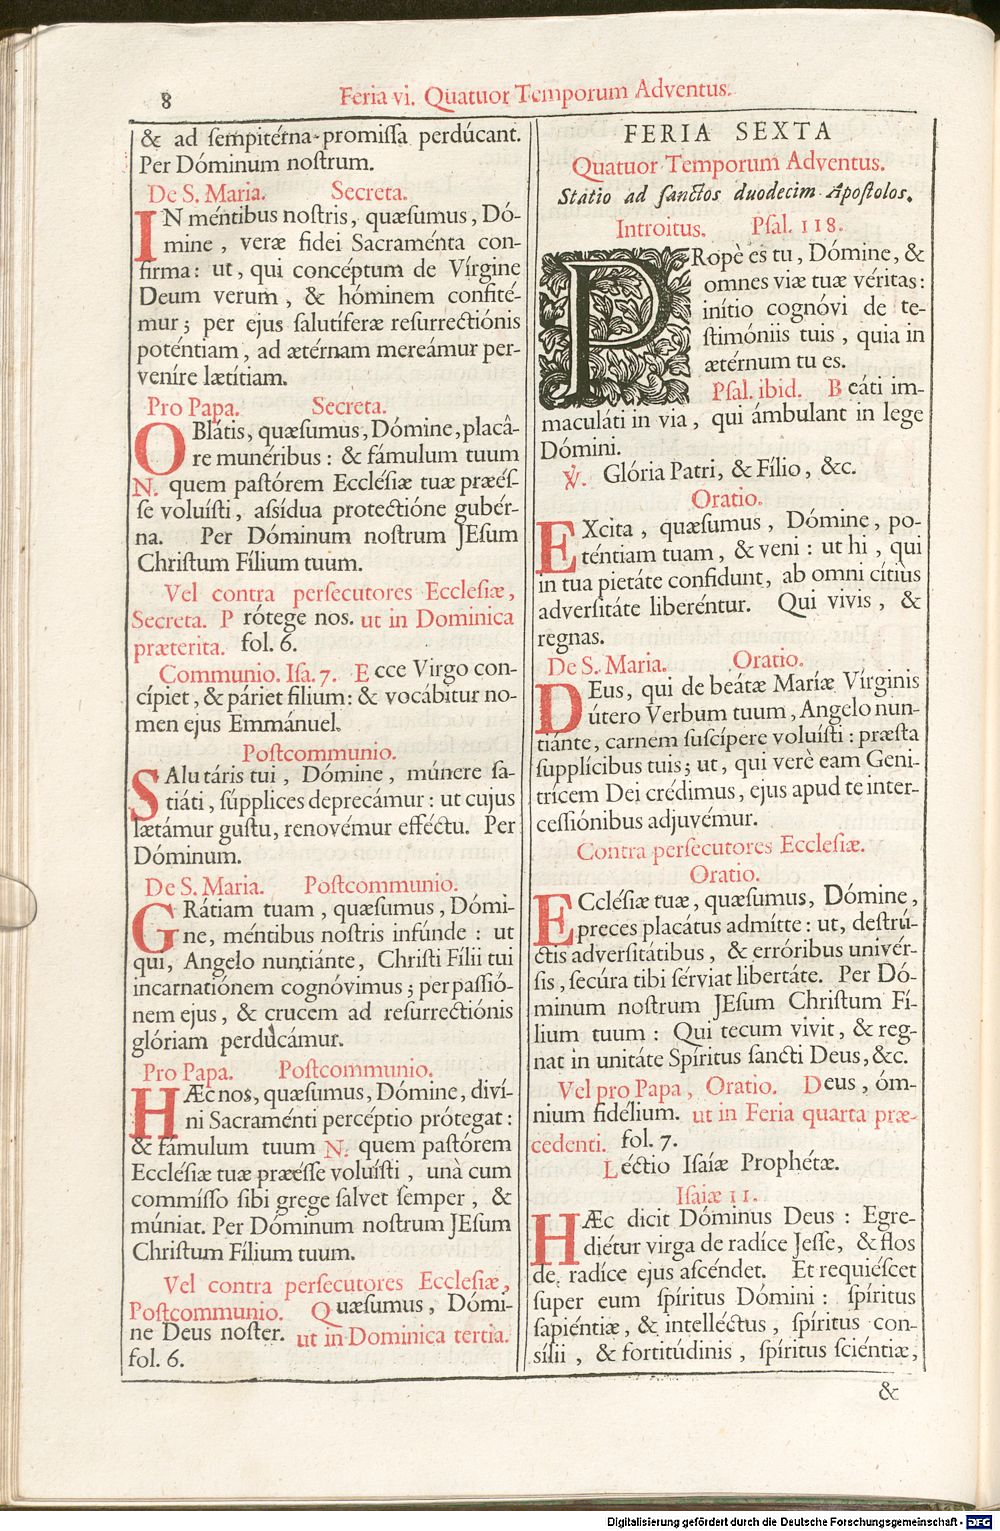 8
Feria vi. Quatuor Temporum Adventus.
& ad ſempitérna promiſſa perdúcant.
Per Dóminum noſtrum.
De S. Maria. Secreta.
IN méntibus noſtris, quæſumus, Dó-
mine, veræ fidei Sacraménta con-
firma: ut, qui concéptum de Vírgine
Deum verum, & hóminem confité-
mur; per ejus ſalutíferæ reſurrectiónis
poténtiam, ad ætérnam mereámur per-
veníre lætítiam.
Pro Papa. Secreta.
OBlátis, quæſumus, Dómine, placâ-
re munéribus: & fámulum tuum
N. quem paſtórem Eccléſiæ tuæ præéſ-
ſe voluíſti, aſſídua protectióne gubér-
na. Per Dóminum noſtrum JEſum
Chriſtum Fílium tuum.
Vel contra perſecutores Eccleſiæ,
Secreta. Prótege nos. ut in Dominica
præterita. fol. 6.
Communio. Iſa. 7. Ecce Virgo con-
cípiet, & páriet filium: & vocábitur no-
men ejus Emmánuel.
Poſtcommunio.
SAlutáris tui, Dómine, múnere ſa-
tiáti, ſúpplices deprecámur: ut cujus
lætámur guſtu, renovémur efféctu. Per
Dóminum.
De S. Maria. Poſtcommunio.
GRátiam tuam, quæſumus, Dómi-
ne, méntibus noſtris infúnde: ut
qui, Angelo nuntiánte, Chriſti Fílii tui
incarnatiónem cognóvimus; per paſſió-
nem ejus, & crucem ad reſurrectiónis
glóriam perducámur.
Pro Papa. Poſtcommunio.
HÆc nos, quæſumus, Dómine, diví-
ni Sacraménti percéptio prótegat:
& fámulum tuum N. quem paſtórem
Eccléſiæ tuæ præéſſe voluíſti, unà cum
commíſſo ſibi grege ſalvet ſemper, &
múniat. Per Dóminum noſtrum JEſum
Chriſtum Fílium tuum.
Vel contra perſecutores Eccleſiæ,
Poſtcommunio. Quæſumus, Dómi-
ne Deus noſter. ut in Dominica tertia.
fol. 6.
FERIA SEXTA
Quatuor Temporum Adventus.
Statio ad ſanctos duodecim Apoſtolos.
Introitus. Pſal. 118.
PRopè es tu, Dómine, &
omnes viæ tuæ véritas:
inítio cognóvi de te-
ſtimóniis tuis, quia in
ætérnum tu es.
Pſal. ibid. Beáti im-
maculáti in via, qui ámbulant in lege
Dómini.
℣. Glória Patri, & Fílio, &c.
Oratio.
EXcita, quæſumus, Dómine, po-
téntiam tuam, & veni: ut hi, qui
in tua pietáte confidunt, ab omni cítiùs
adverſitáte liberéntur. Qui vivis, &
regnas.
De S. Maria. Oratio.
DEus, qui de beátæ Maríæ Vírginis
útero Verbum tuum, Angelo nun-
tiánte, carnem ſuſcípere voluíſti: præſta
ſupplícibus tuis; ut, qui verè eam Geni-
trícem Dei crédimus, ejus apud te inter-
ceſſiónibus adjuvémur.
Contra perſecutores Eccleſiæ.
Oratio.
ECcléſiæ tuæ, quæſumus, Dómine,
preces placátus admítte: ut, deſtrú-
ctis adverſitátibus, & erróribus univér-
ſis, ſecúra tibi ſérviat libertáte. Per Dó-
minum noſtrum JEſum Chriſtum Fí-
lium tuum: Qui tecum vivit, & reg-
nat in unitáte Spíritus ſancti Deus, &c.
Vel pro Papa, Oratio. Deus, óm-
nium fidélium. ut in Feria quarta præ-
cedenti. fol. 7.
Léctio Iſaíæ Prophétæ.
Iſaiæ 11.
HÆc dicit Dóminus Deus: Egre-
diétur virga de radíce Jeſſe, & flos
de radíce ejus aſcéndet. Et requiéſcet
ſuper eum ſpíritus Dómini: ſpíritus
ſapiéntiæ, & intelléctus, ſpíritus con-
sílii, & fortitúdinis, ſpíritus ſciéntiæ,
&
Digitalisierung gefördert durch die Deutsche Forschungsgemeinschaft - DFG